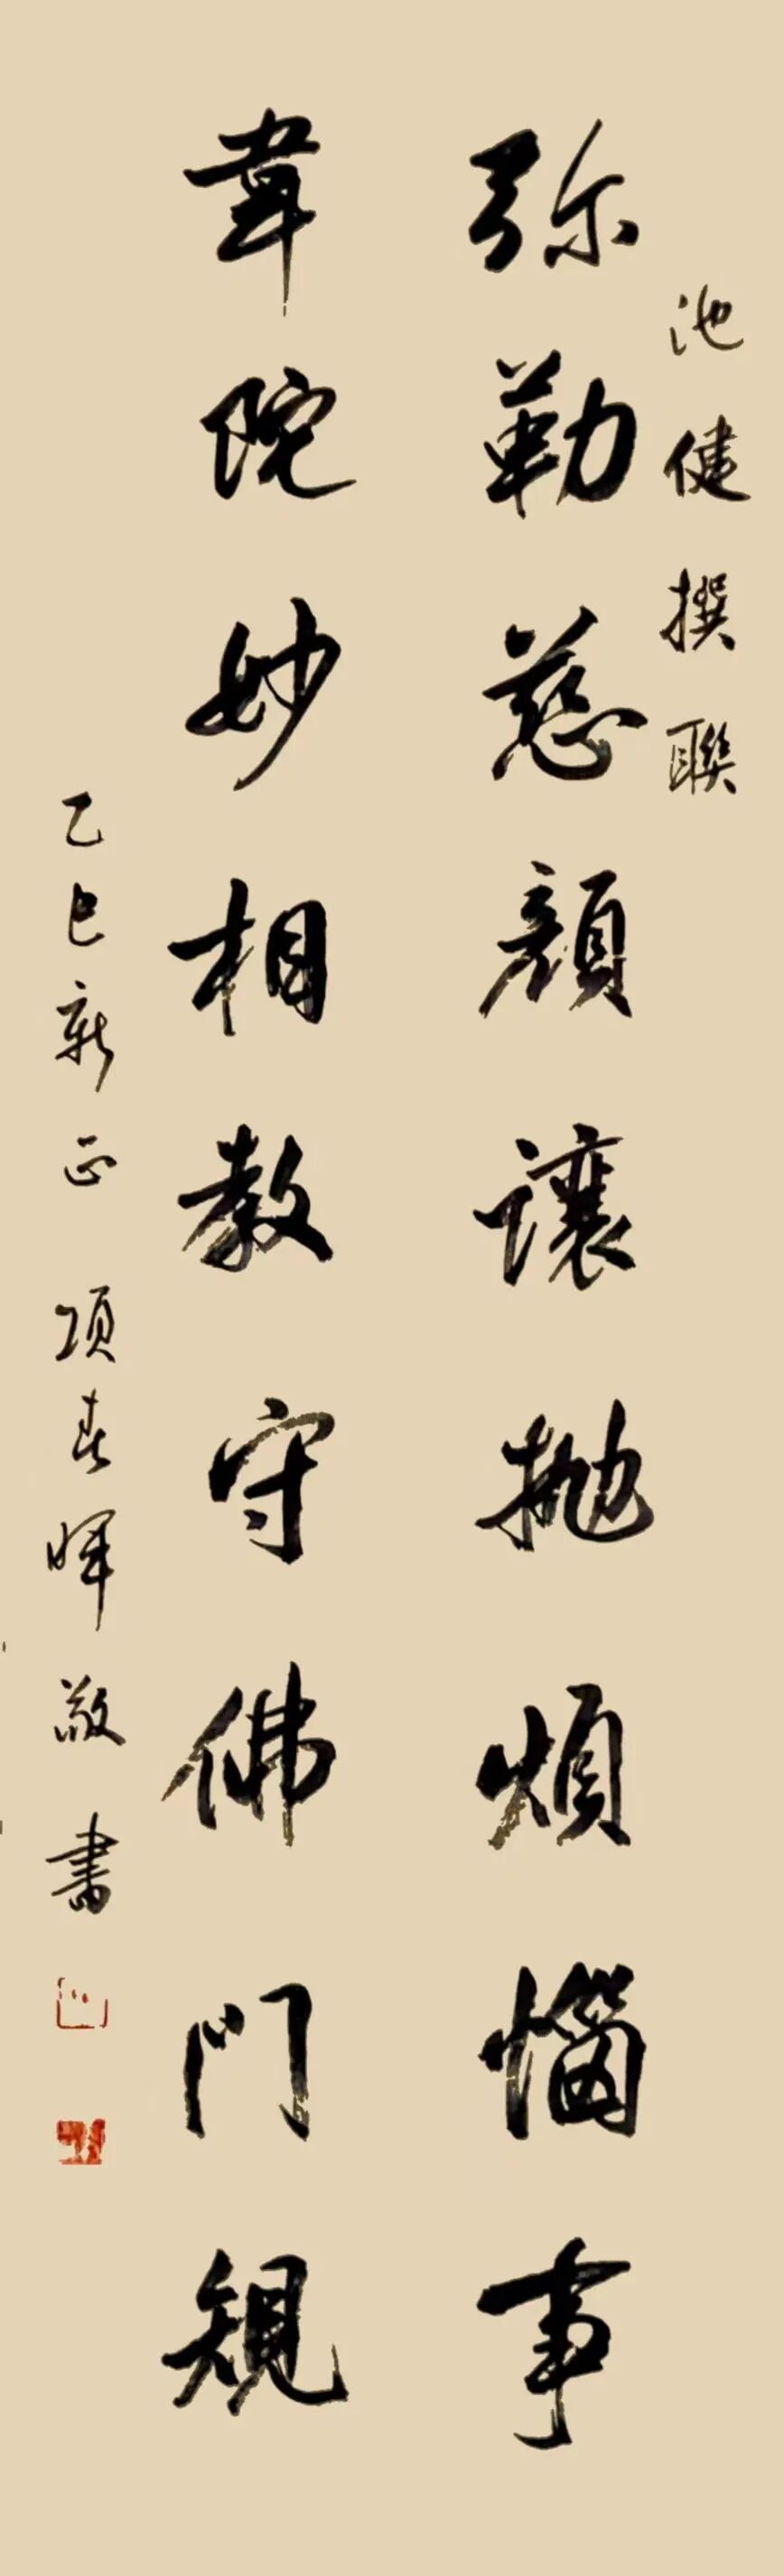 池健撰聯
弥勒慈顏讓拋煩惱事
韋陀妙相教守佛門規
乙巳新正 項春暉敬書